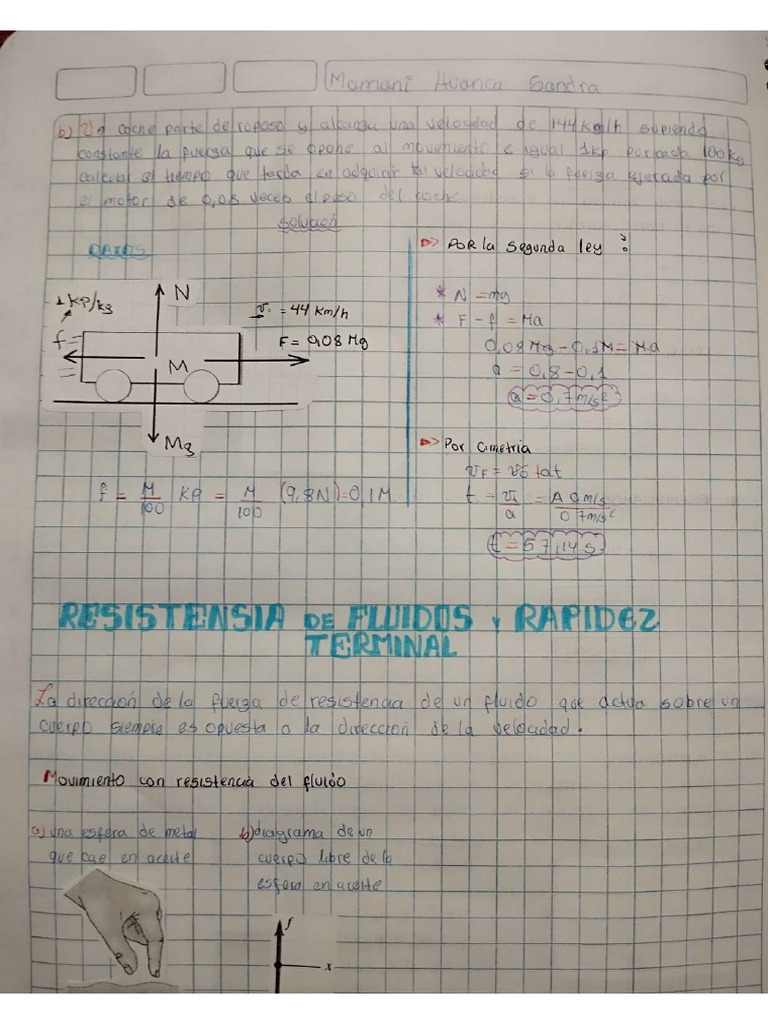 Mamani Huanca Sandra
b) Un coche parte de roposo y alcanza una velocidad de 144 Km/h supiendo
constante la fuerza que se opone al movimiento e igual 1kp por cada 100kg
calcular el tiempo que tarda en adquirir tal velocidad si la fuerza ejercida por
el motor de 0,08 veces el peso del coche
solución
DATOS
▷ POR la segunda ley :
1 KP/kg
N
v. = 44 Km/h
* N = mg
f
F = 0,08 Mg
* F - f = Ma
M
0,08 Mg - 0,1M = Ma
a = 0,8 - 0,1
a = 0,7 m/s²
Mg
▷ Por Cimetria
VF = Vo + at
f = M/100 KP = M/100 (9,8N) = 0,1 M
t = Vf/a = A 0 m/s / 0 7m/s²
t = 57,14 s.
RESISTENSIA DE FLUIDOS Y RAPIDEZ
TERMINAL
La dirección de la fuerza de resistencia de un fluido que actua sobre un
cuerpo siempre es opuesta a la dirección de la velocidad.
Movimiento con resistencia del fluido
a) una esfera de metal
que cae en aceite
b) diagrama de un
cuerpo libre de la
esfera en aceite
f
x